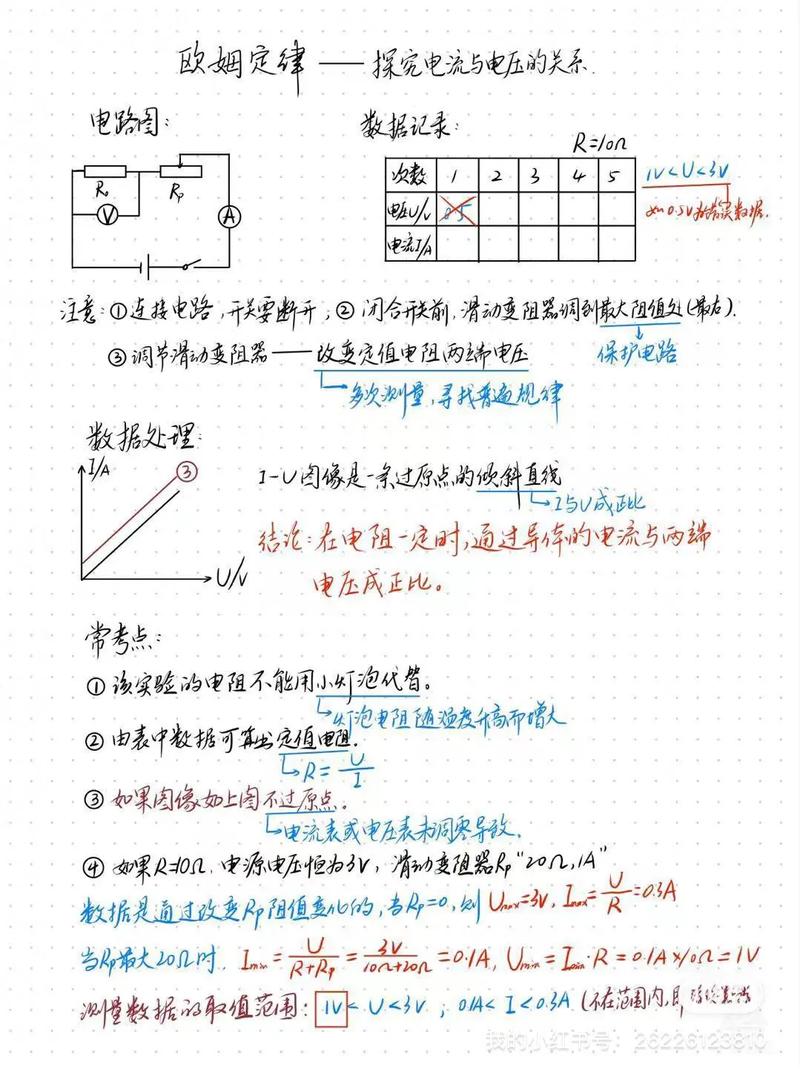 欧姆定律——探究电流与电压的关系.
电路图:
数据记录:
R=10Ω
R₀
Rₚ
V
A
次数 1 2 3 4 5
电压U/V 0.5
电流I/A
1V<U<3V
如0.5V为错误数据.
注意:①连接电路,开关要断开;②闭合开关前,滑动变阻器调到最大阻值处(最右).
保护电路
③调节滑动变阻器——改变定值电阻两端电压
多次测量,寻找普遍规律
数据处理:
I/A
③
U/V
I-U图像是一条过原点的倾斜直线
I与U成正比
结论:在电阻一定时,通过导体的电流与两端
电压成正比。
常考点:
①该实验的电阻不能用小灯泡代替。
灯泡电阻随温度升高而增大
②由表中数据可算出定值电阻.
R=U/I
③如果图像如上图不过原点。
电流表或电压表未调零导致.
④如果R=10Ω,电源电压恒为3V,滑动变阻器Rₚ"20Ω,1A"
数据是通过改变Rₚ阻值变化的,当Rₚ=0,则Umax=3V,Imax=U/R=0.3A
当Rₚ最大20Ω时,Imin=U/(R+Rₚ)=3V/(10Ω+20Ω)=0.1A,Umin=Imin·R=0.1A×10Ω=1V
测量数据的取值范围:1V<U<3V;0.1A<I<0.3A(不在范围内,即
我的小红书号:26226123810